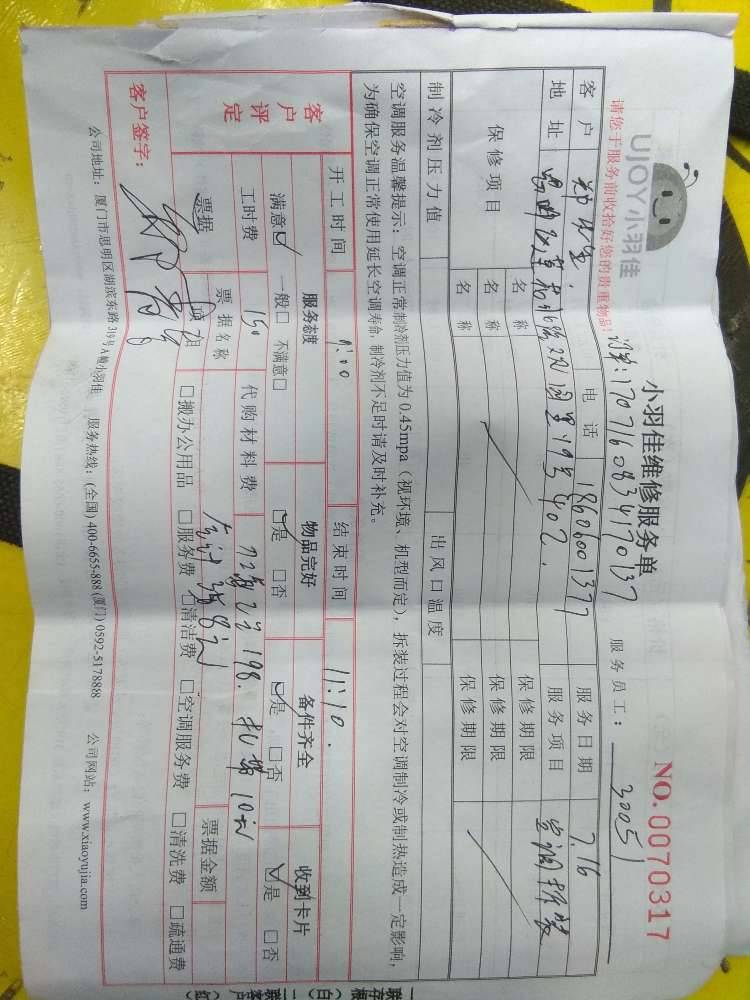 UJOY小羽佳
小羽佳维修服务单
NO.0070317
请您于服务前收拾好您的贵重物品!
1707160834170137
服务员工: 30051
客户
电话 18606001377
服务日期 7.16
地址
19号402.
服务项目 空调拆装
保修项目
名称
保修期限
名称
保修期限
名称
保修期限
制冷剂压力值
出风口温度
空调服务温馨提示: 空调正常制冷剂压力值为0.45mpa (视环境、机型而定), 拆装过程会对空调制冷或制热造成一定影响,
为确保空调正常使用延长空调寿命, 制冷剂不足时请及时补充。
开工时间 9:00
结束时间 11:10.
客户评定
服务态度
物品完好
备件齐全
收到卡片
满意☑ 一般□ 不满意□
☑是 □否
☑是 □否
☑是 □否
工时费 150
代购材料费
198.
10元
票据
票据名称
票据金额
项目
□搬办公用品 □服务费 □清洁费 □空调服务费 □清洗费 □疏通费
客户签字:
公司地址: 厦门市思明区湖滨东路319号A幢小羽佳 服务热线: (全国) 400-6655-888 (厦门) 0592-5178888 公司网站: www.xiaoyujia.com